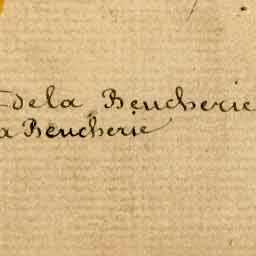 dela Beucherie
a Beucherie